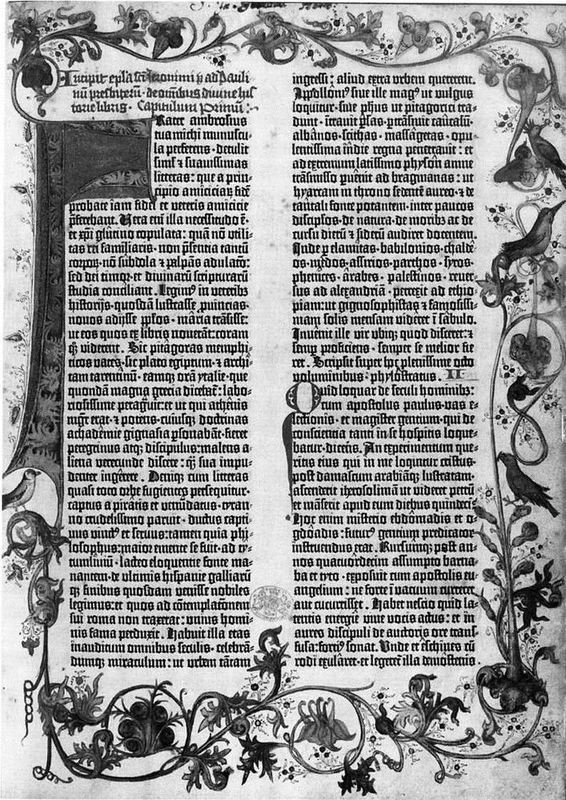 Incipit epistola sancti iheronimi ad Pauli
num presbiterum de omnibus divine his
torie libris. Capitulum primum.
Frater ambrosius
tua michi munuscu
la perferens. detulit
simul et suavissimas
litteras: que a prin
cipio amiciciarum fidē
probate iam fidei et veteris amicicie
pferebant. Vera eni illa necessitudo ē.
et xp̄i glutino copulata: quā nō utili
tas rei familiaris. nō pn̄tia tantū
corporū. nō subdola et palpās adulacō.
sed dei timor. et divinarū scripturarū
studia conciliant. Legimus in veteribz
historijs. quosdā lustrasse. puincias.
novos adijsse pplos. maria trāsisse:
ut eos quos ex libris noverāt: coram
qz viderent. Sic pitagoras memphi
ticos vates. sic plato egiptum. et archi
tam tarentinū. eamqz oram ytalie. que
quondā magna grecia dicebat: labo
riosissime peragravit: et ut qui athenis
mgr̄ erat. et potens. cuiusqz doctrinas
achademie gignasia psonabāt. fieret
peregrinus atqz discipulus: malens a
liena verecunde discere: qz sua impu
denter ingerere. Deniqz cum litteras
quasi toto orbe fugientes persequitur.
captus a piratis et venundatus. tyran
no crudelissimo paruit. ductus capti
vus vinctus et servus: tamen quia phi
losophus: maior emente se fuit. ad ty
tumlivium. lacteo eloquentie fonte ma
nantem. de ultimis hispanie galliarū
qz finibus quosdam venisse nobiles
legimus: et quos ad cōtemplacōnem
sui roma non traxerat: unius homi
nis fama perduxit. Habuit illa etas
inauditum omnibus seculis. celebrā
dumqz miraculum: ut urbem tantam
ingressi: aliud extra urbem quererent.
Apollonius sive ille magus ut vulgus
loquitur. sive phus ut pitagorici tra
dunt. intravit psas. ptrāsivit caucasū.
albanos. scithas. massagetas. opu
lentissima indie regna penetravit: et
ad extremum latissimo physon amne
trāsmisso pvenit ad bragmanas: ut
hyarcam in throno sedentē aureo. et de
tantali fonte potantem. inter paucos
discipulos. de natura. de moribz ac de
cursu dierū et siderū audiret docentem.
Inde p elamitas. babilonios. chalde
os. medos. assirios. parthos. syros.
phenices. arabes. palestinos. rever
sus ad alexandriā. perrexit ad ethio
piam: ut gignosophistas et famosissi
mam solis mensam videret ī sabulo.
Invenit ille vir ubiqz quod disceret: et
semp proficiens. semper se melior fie
ret. Scripsit super hoc plenissime octo
voluminibus. phylostratus. II
Quid loquar de seculi hominibz:
cum apostolus paulus. vas e
lectionis. et magister gentium. qui de
consciencia tanti in se hospitis loque
batur. dicens. An experimentum que
ritis eius qui in me loquitur cristus.
post damascum arabiāqz lustratam:
ascenderit iherosolimā ut videret petrū
et māserit apud eum diebus quindeci.
Hoc enim misterio ebdomadis et o
gdoadis: futurus gentium predicator
instruendus erat. Rursumqz post an
nos quatuordecim assumpto barna
ba et tyto. exposuit cum apostolis eu
angelium: ne forte ī vacuum curreret
aut cucurrisset. Habet nescio quid la
tentis energie vive vocis actus: et in
aures discipuli de auctoris ore trans
fusa: forcius sonat. Unde et eschines cū
rodi exularet. et legeretur illa demostenis